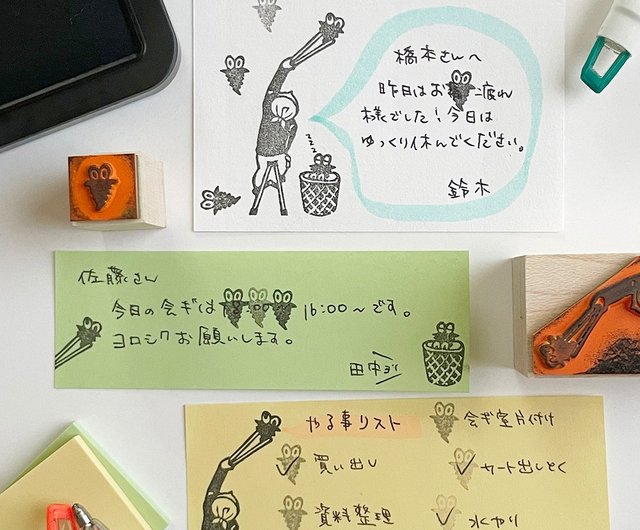 橋本さんへ
昨日はお疲れ
様でした!今日は
ゆっくり休んでください。
鈴木
zzz
佐藤さん
今日の会ギは 16:00〜です。
ヨロシクお願いします。
田中より
やる事リスト
会ギ室片付け
買い出し
カート出しとく
資料整理
水やり